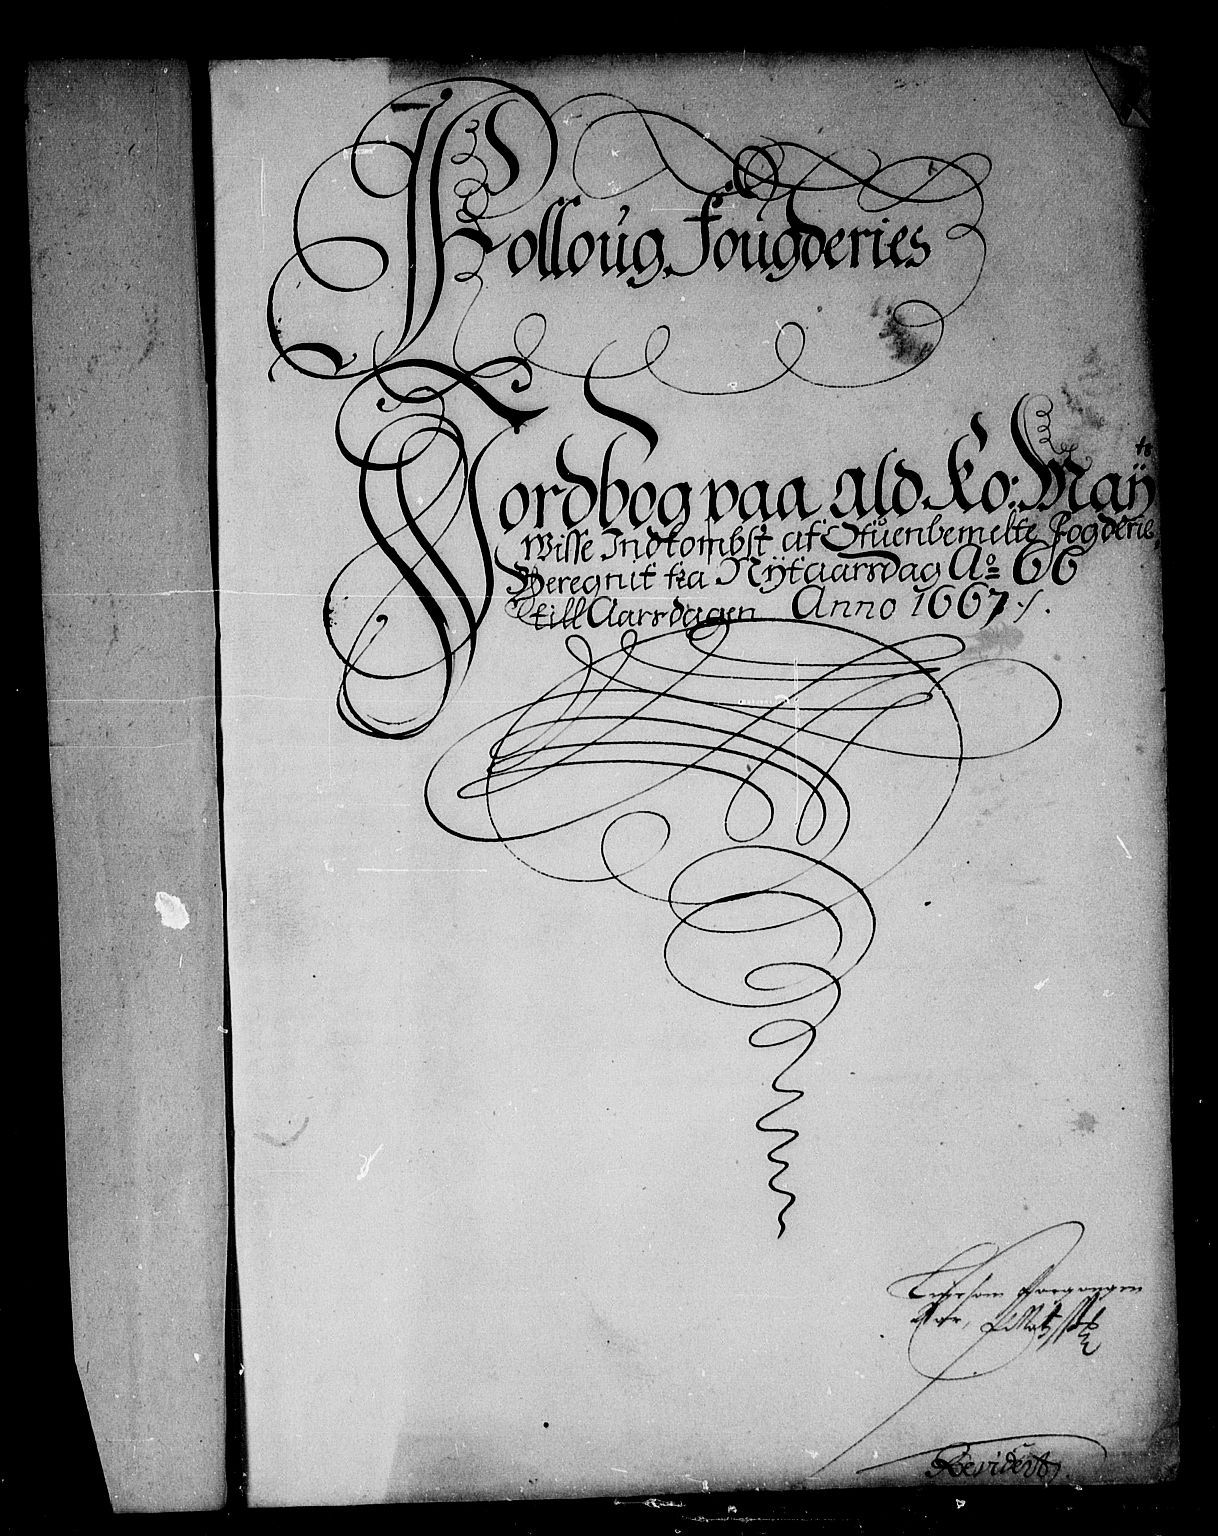 Folloug Fougderies
Jordbog paa ald Ko: Maÿ ts
Wisse Indkombst af Ofuenbemelte Fogderie,
Beregnit fra Nÿtaarsdag Ao 66
till Aarsdagen Anno 1667 ./.
Revidert